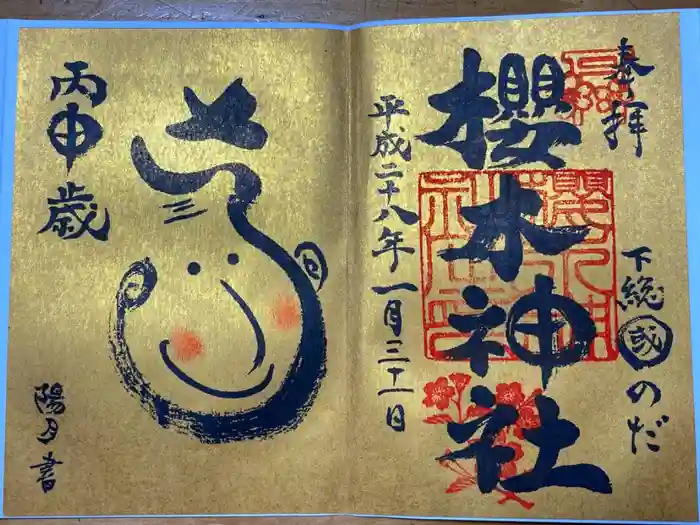 奉拝
下総國のだ
櫻木神社
平成二十八年一月三十一日
丙申歳
陽乃書